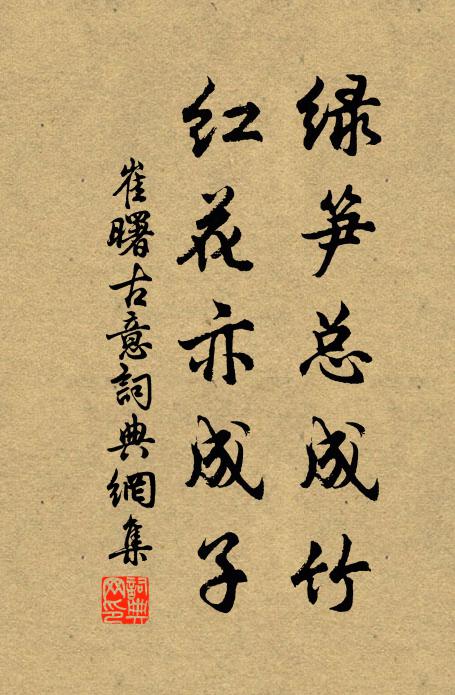 绿笋总成竹
红花亦成子
崔曙古意詞典網集
詞典网印